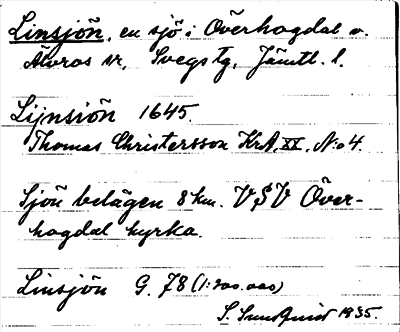 Linsjön, en sjö i Överhogdal o.
Älvros sn, Svegs tg, Jämtl. l.
Lijnsiön 1645.
Thomas Christersson KrA, XX, No 4.
Sjön belägen 8 km. VSV Över-
hogdal kyrka.
Linsjön G. 78 (1:200.000)
S. Sundquist 1935.